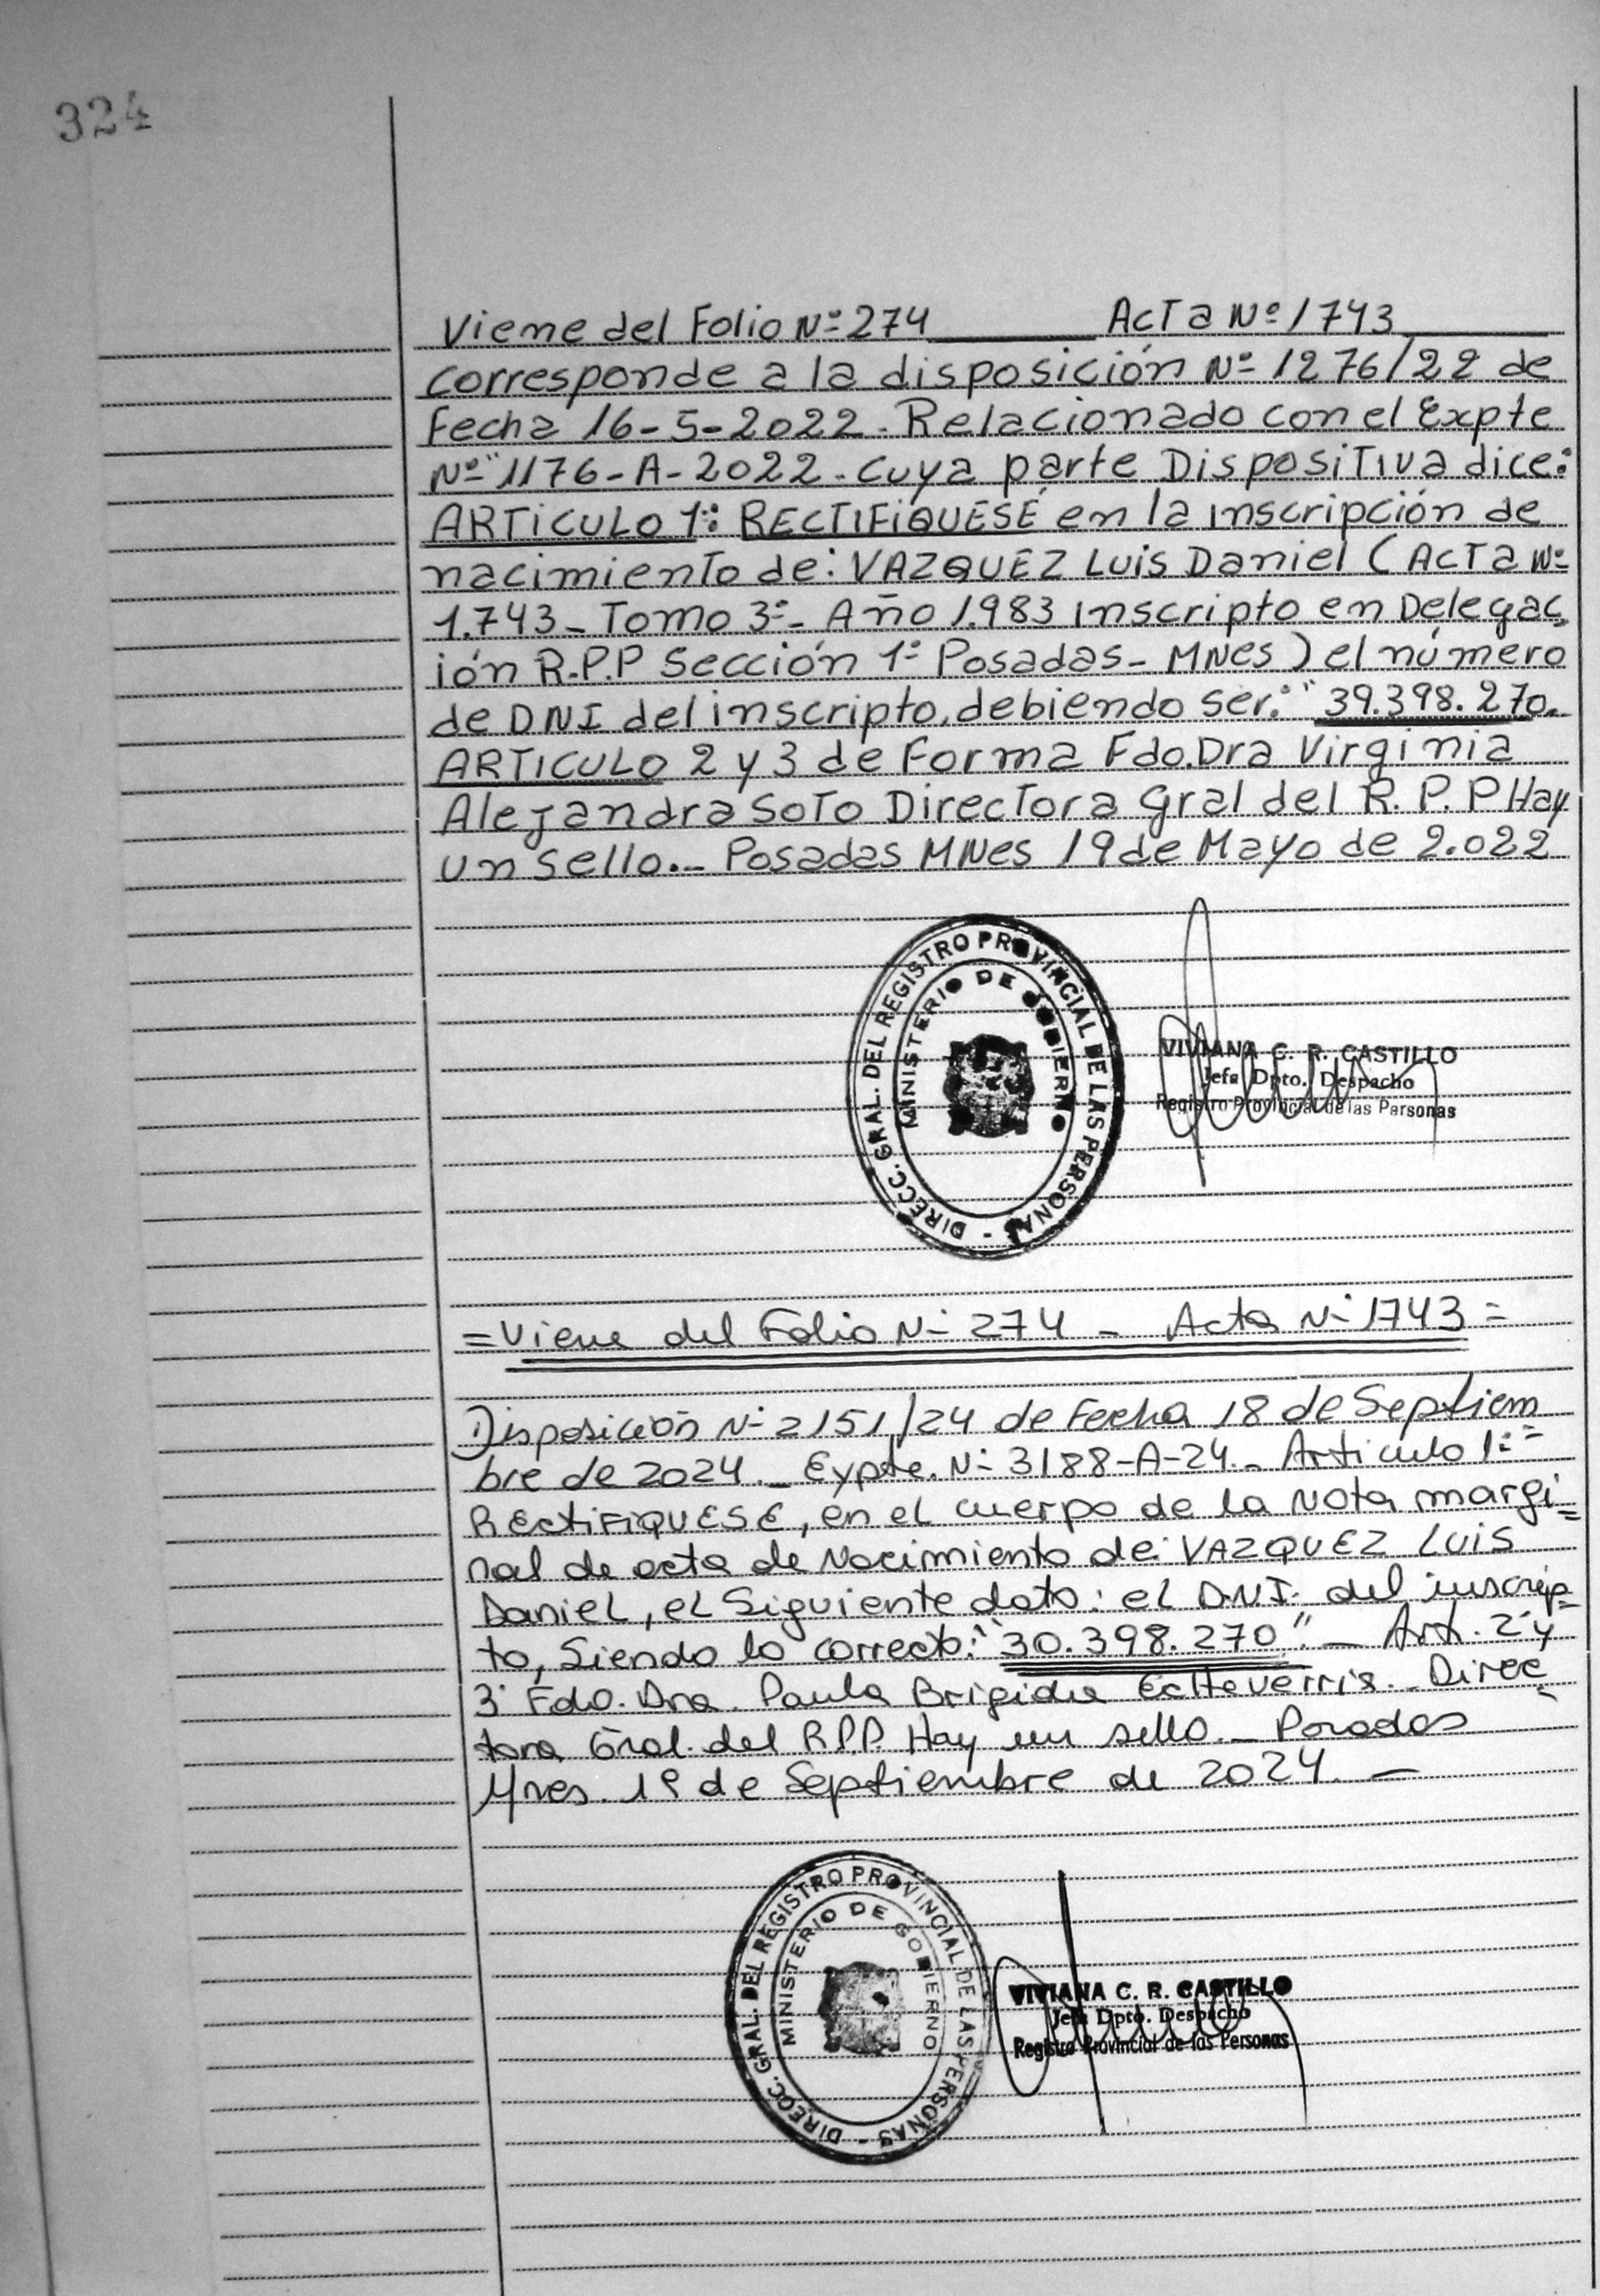 324
Viene del Folio Nº 274 Acta Nº 1743
corresponde a la disposición Nº 1276/22 de
Fecha 16-5-2022. Relacionado con el Expte
Nº "1176-A-2022. cuya parte Dispositiva dice:
ARTICULO 1º: RECTIFIQUESE en la inscripción de
nacimiento de: VAZQUEZ Luis Daniel (Acta Nº
1.743 - Tomo 3º - Año 1.983 inscripto en Delegac
ión R.P.P Sección 1º Posadas - MNes) el número
de DNI del inscripto, debiendo ser: "39.398.270.
ARTICULO 2 y 3 de Forma Fdo. Dra Virginia
Alejandra Soto Directora Gral del R.P.P Hay
un sello.- Posadas MNes 19 de Mayo de 2.022
DIRECC. GRAL. DEL REGISTRO PROVINCIAL DE LAS PERSONAS -
MINISTERIO DE GOBIERNO
VIVIANA C. R. CASTILLO
Jefa Dpto. Despacho
Registro Provincial de las Personas
= Viene del Folio Nº 274 - Acta Nº 1743 =
Disposición Nº 2151/24 de Fecha 18 de Septiem
bre de 2024.- Expte. Nº 3188-A-24.- Articulo 1º: =
RECTIFIQUESE, en el cuerpo de la Nota margi=
nal de acta de Nacimiento de: VAZQUEZ LUIS
DanieL, el Siguiente dato: el D.N.I. del inscrip=
to, Siendo lo correcto: "30.398.270".- Art. 2º y
3º Fdo. Dra. Paula Brigida Echeverria.- Direc=
tora Gral. del R.P.P. Hay un sello.- Posadas
Mnes. 19 de Septiembre de 2024.-
DIRECC. GRAL. DEL REGISTRO PROVINCIAL DE LAS PERSONAS -
MINISTERIO DE GOBIERNO
VIVIANA C. R. CASTILLO
Jefa Dpto. Despacho
Registro Provincial de las Personas